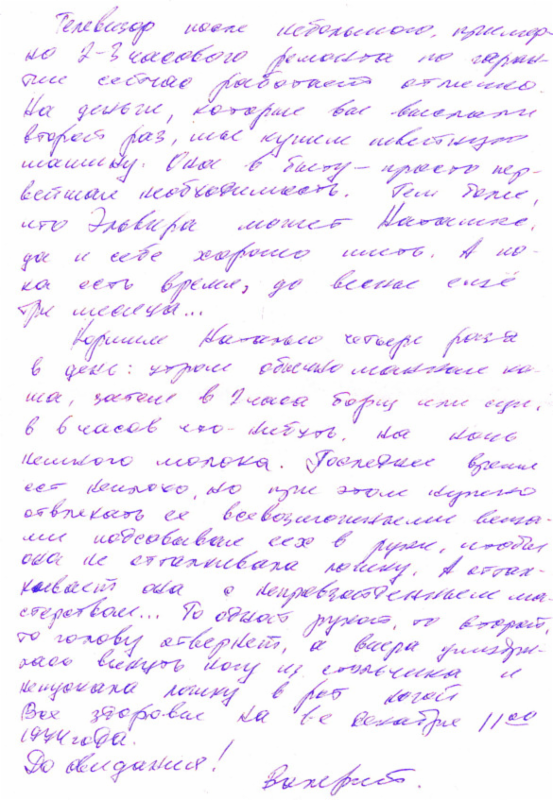 Телевизор после небольшого, пример-
но 2-3 часового ремонта по гаран-
тии сейчас работает отлично.
На деньги, которые вы выслали
второй раз, мы купим швейную
машину. Она в быту – просто пер-
вейшая необходимость. Тем более,
что Эльвира может Наташке,
да и себе хорошо шить. А по-
ка есть время, до весны ещё
три месяца...
Кормим Наталью четыре раза
в день: утром обычно манная ка-
ша, затем в 2 часа борщ или щи,
в 6 часов что-нибудь, на ночь
немного молока. Последнее время
ест неплохо, но при этом нужно
отвлекать её всевозможными веща-
ми подсовывая их в руки, чтобы
она не отталкивала ложку. А оттал-
кивает она с непревзойденным ма-
стерством... То одной рукой, то второй,
то голову отвернет, а вчера умудри-
лась вынуть ногу из стольчика и
не пускала ложку в рот ногой
Все здоровы на 1-е декабря 11 00
1974 года.
До свидания!
Валерий.